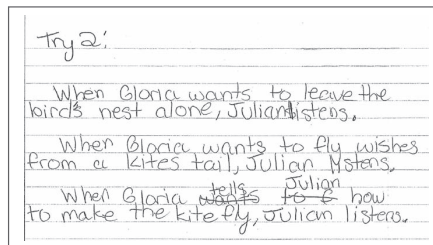 Try 2:
When Gloria wants to leave the
bird's nest alone, Julian listens.
When Gloria wants to fly wishes
from a kites tail, Julian listens.
When Gloria wants tells to f Julian how
to make the kite fly, Julian listens.